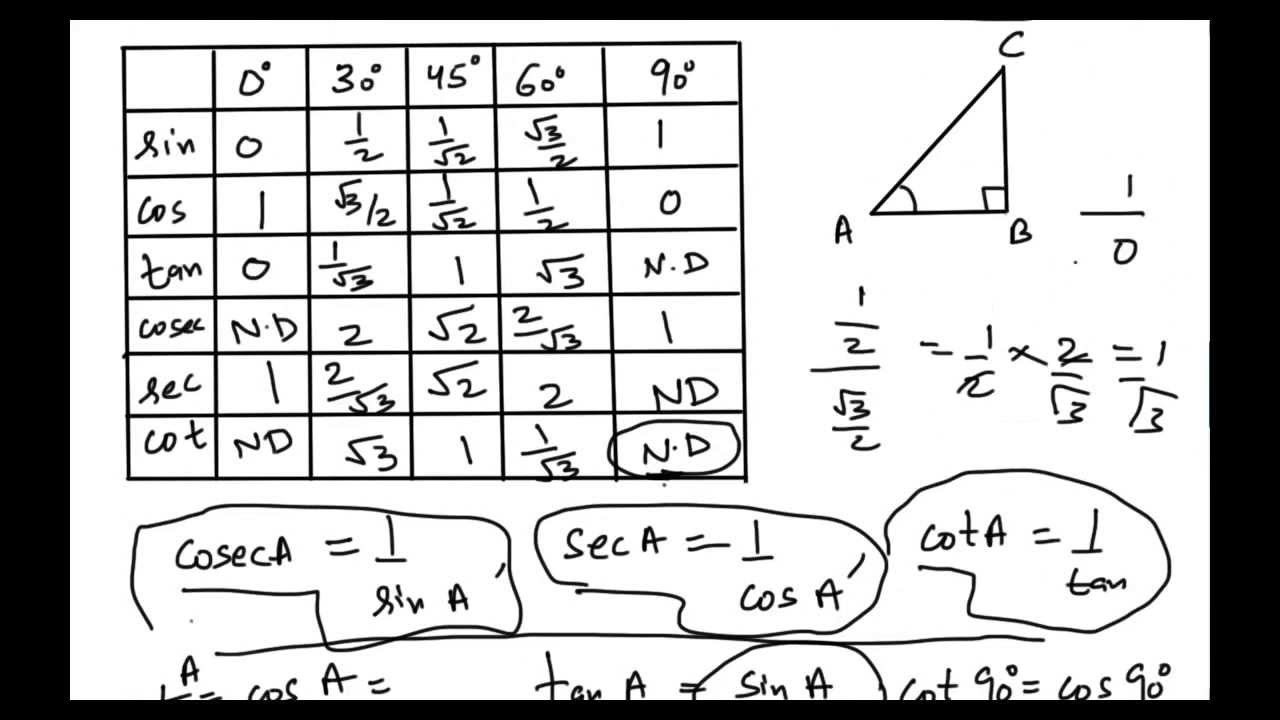 0° 30° 45° 60° 90°
sin 0 1/2 1/√2 √3/2 1
cos 1 √3/2 1/√2 1/2 0
tan 0 1/√3 1 √3 N.D
cosec N.D 2 √2 2/√3 1
sec 1 2/√3 √2 2 ND
cot ND √3 1 1/√3 N.D
C
A B
1/0
1/2 / √3/2 = 1/2 × 2/√3 = 1/√3
cosecA = 1/sin A
sec A = 1/cos A
cotA = 1/tan
A = cos A =
tan A = sin A
cot 90° = cos 90°